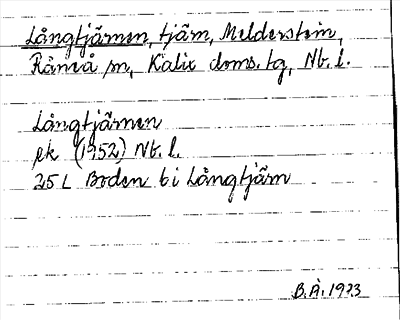 Långtjärnen, tjärn, Melderstein,
Råneå sn, Kalix doms. tg, Nb. l.
Långtjärnen
ek (1952) Nb. l.
25 L Boden b i Långtjärn
B.Å. 1973